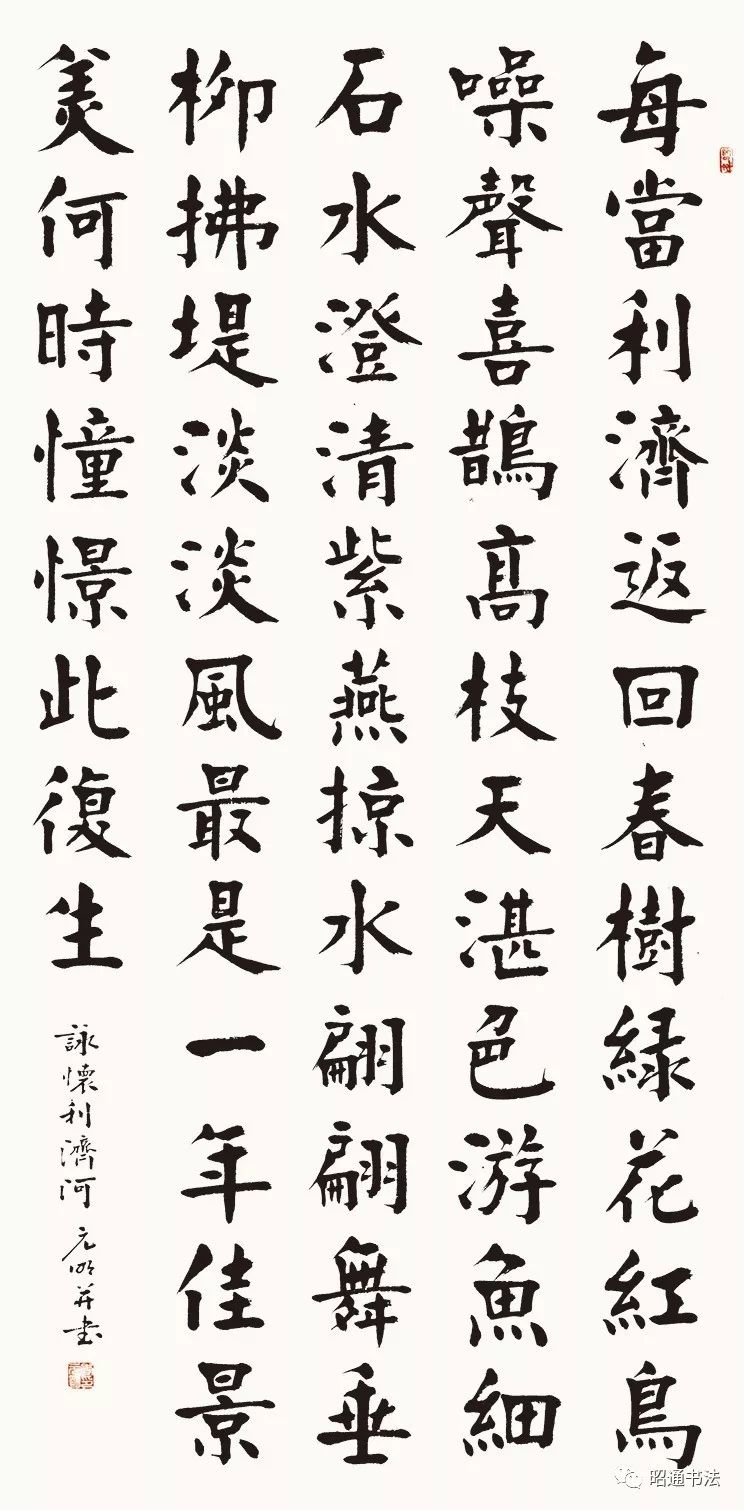 每當利濟返回春樹緑花紅鳥
噪聲喜鵲高枝天湛色游魚細
石水澄清紫燕掠水翩翩舞垂
柳拂堤淡淡風最是一年佳景
美何時憧憬此復生
詠懷利濟河 元明并书
昭通书法